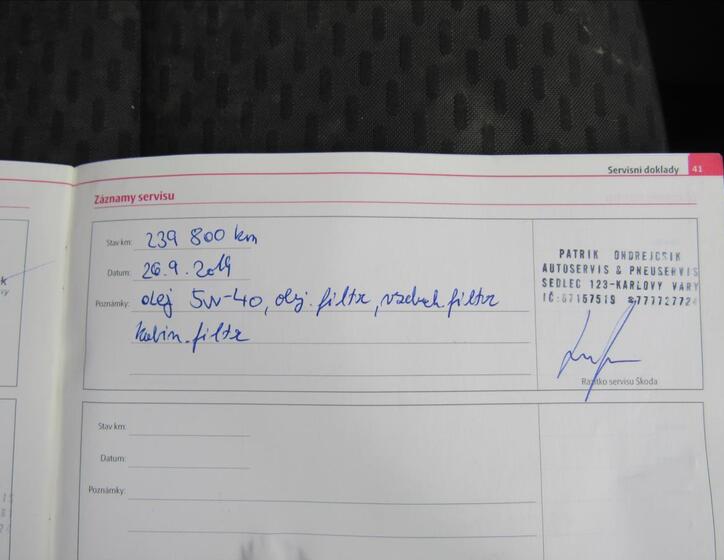 Servisní doklady 41
Záznamy servisu
Stav km: 239 800 km
Datum: 26.9.2019
Poznámky: olej 5W-40, olej. filtr, vzduch. filtr
kabin. filtr
PATRIK ONDREJCSIK
AUTOSERVIS & PNEUSERVIS
SEDLEC 123-KARLOVY VARY
IČ:67157519
Razítko servisu Škoda
Stav km:
Datum:
Poznámky: